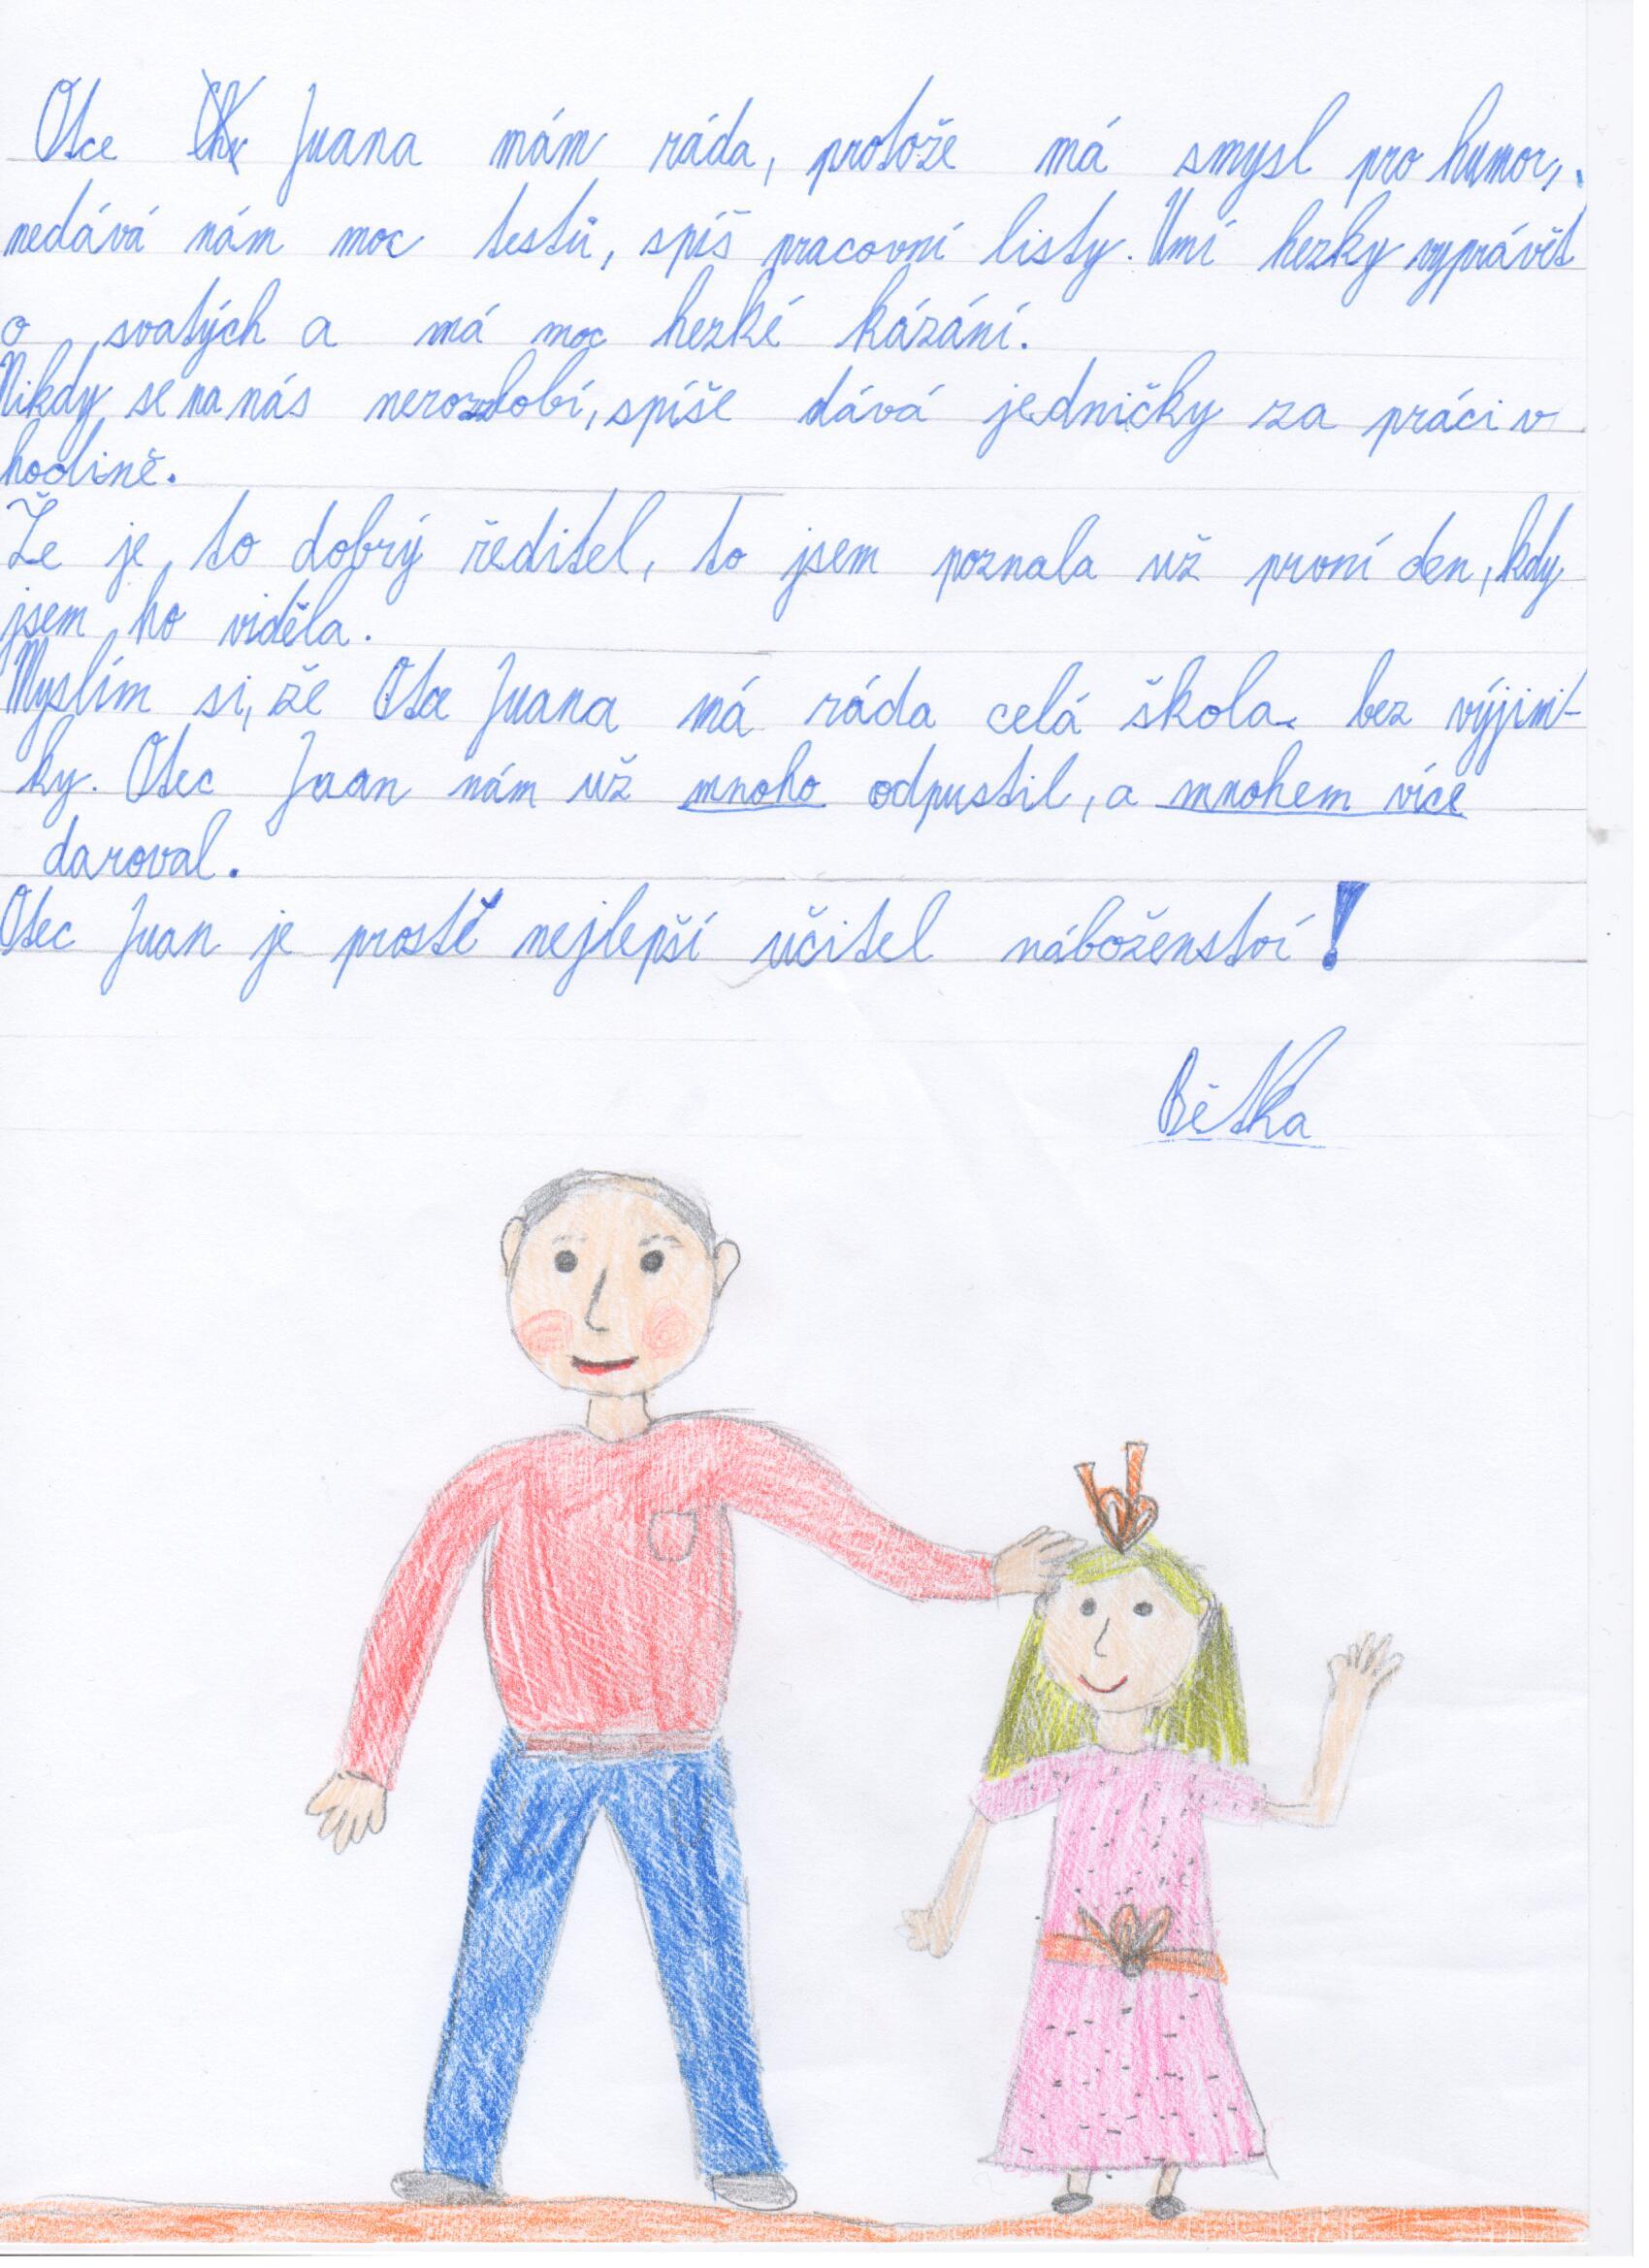 Otce Juana mám ráda, protože má smysl pro humor,
nedává nám moc testů, spíš pracovní listy. Umí hezky vyprávět
o svatých a má moc hezké kázání.
Nikdy se na nás nerozzlobí, spíše dává jedničky za práci v
hodině.
Že je to dobrý ředitel, to jsem poznala už první den, kdy
jsem ho viděla.
Myslím si, že Otce Juana má ráda celá škola bez výjim-
ky. Otec Juan nám už mnoho odpustil, a mnohem více
daroval.
Otec Juan je prostě nejlepší učitel náboženství!
Bětka